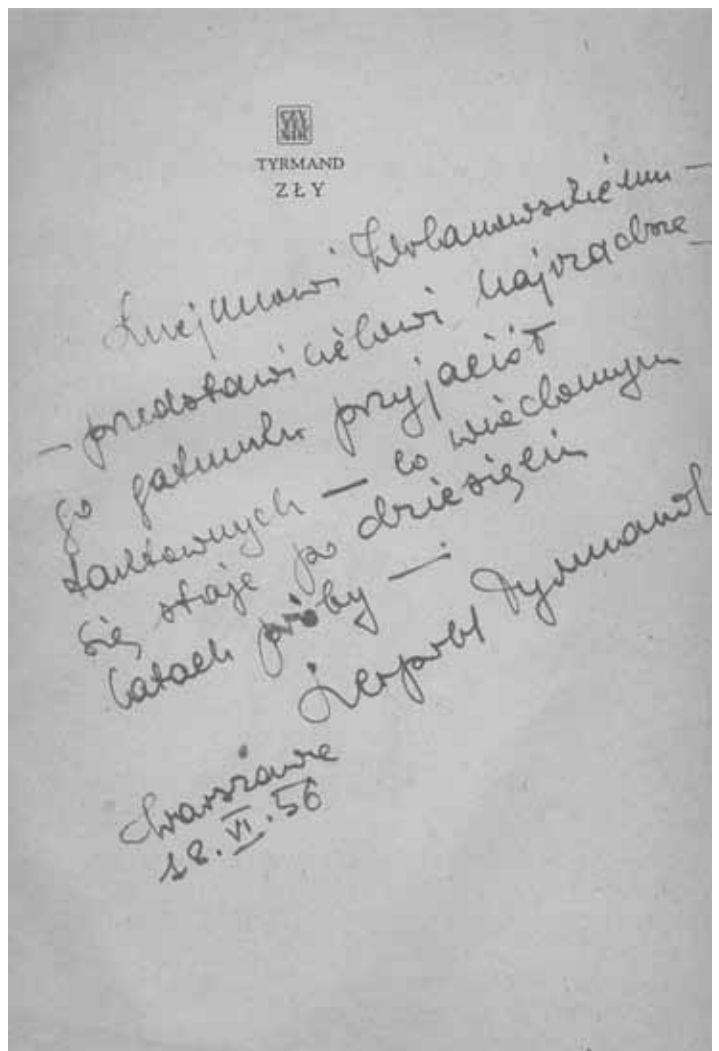 CZY
TEL
NIK
TYRMAND
ZŁY
Lucjanowi Wolanowskiemu —
— przedstawicielowi najrzadsze-
go gatunku przyjaciół
taktownych — co wiadomym
się staje po dziesięciu
latach próby —
Leopold Tyrmand
Warszawa
18. VI. 56